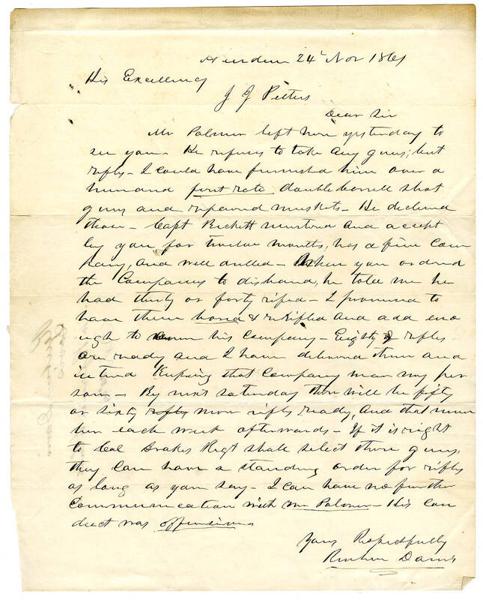 Aberdeen 24th Nov 1861
His Excellency
J J Pettus
Dear Sir
Mr Palmer left here yesterday to
see you - He refuses to take any guns, but
rifles - I could have furnished him over a
thousand first rate double barrell shot
guns and repaired muskets - He declined
them - Capt Beckett mustered and accept
by you for twelve months, has a fine Com
pany, and well drilled - When you ordered
the Companies to disband, he told me he
had thirty or forty rifles - I promised to
have them bored & rifled and add eno
ugh to his Company - Eighty rifles
are ready and I have delivered them and
intend keeping that Company near my per
son - By next saturday there will be fifty
or sixty rifles more ready, and that num
ber each week afterwards - If it is right
to Col Drakes Regt shall select these guns,
they can have a standing order for rifles
as long as you say - I can have no further
Communication with Mr Palmer - His con
duct was offensive
Yours Respectfully
Reuben Davis